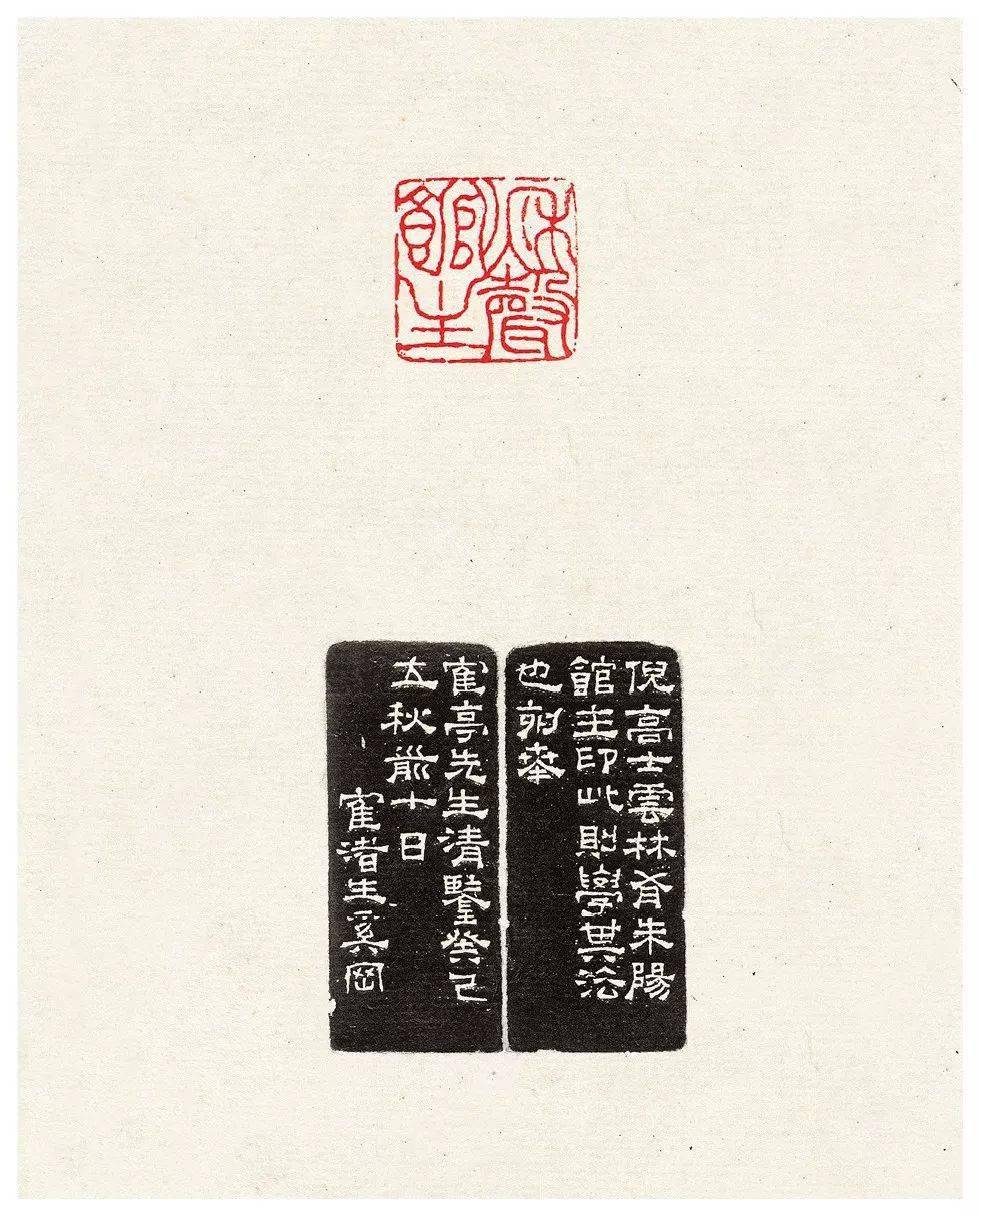 秋聲
館主
倪高士雲林有朱陽
館主印此則學其法
也刻奉
寉亭先生清鑒癸巳
立秋前十日
寉渚生奚岡